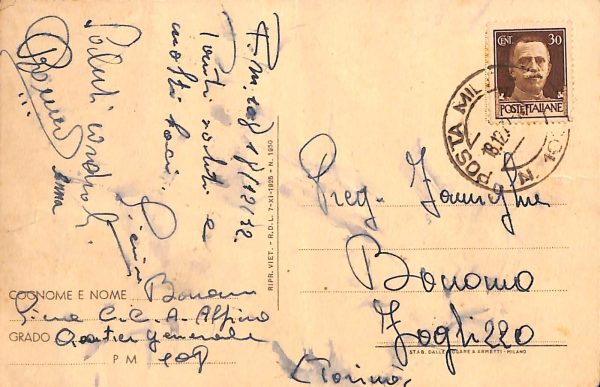 P.M. 109 18/12/42.
Tanti saluti e
molti baci.
Saluti cordiali
CENT. 30
POSTE ITALIANE
POSTA MIL
N. 10
18.12.
RIPR. VIET. - R.D.L. 7-XI-1925 - N. 1950
Preg. Famiglia
Bonomo
Foglizzo
(Torino)
COGNOME E NOME Bonomo
C.C.A. Alpino
GRADO Quartier generale
P M 109
STAB. DALLE NOGARE & ARMETTI - MILANO